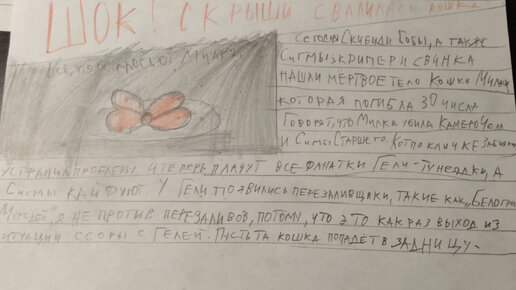 ШОК! С КРЫШИ СВАЛИЛАСЬ КОШКА
СЕГОДНЯ СКИБИДИ БОБЫ, А ТАКЖЕ
СИГМЫ ЗКРИПЕРИ СВИНКА
НАШЛИ МЁРТВОЕ ТЕЛО КОШКИ МИЛКИ
КОТОРАЯ ПОГИБЛА 30 ЧИСЛА
ГОВОРЯТ, ЧТО МИЛКА УБИЛА КАМЕРОЧЕЛ
И СИГМЫ СТАРШЕГО. КОТ ПО КЛИЧКЕ
УСТРАНИЛ ПРОБЛЕМУ И ТЕПЕРЬ ПЛАЧУТ ВСЕ ФАНАТКИ ГЕЛИ-ТУНЕЯДКИ, А
СИГМЫ КАЙФУЮТ. У ГЕЛИ ПОЯВИЛИСЬ ПЕРЕЗАЛИВЩИКИ, ТАКИЕ КАК,
Я НЕ ПРОТИВ ПЕРЕЗАЛИВОВ, ПОТОМУ, ЧТО ЭТО КАК РАЗ ВЫХОД ИЗ
СИТУАЦИИ ССОРЫ С ГЕЛЕЙ. ПУСТЬ ТА КОШКА ПОПАДЁТ В ЗАДНИЦУ.